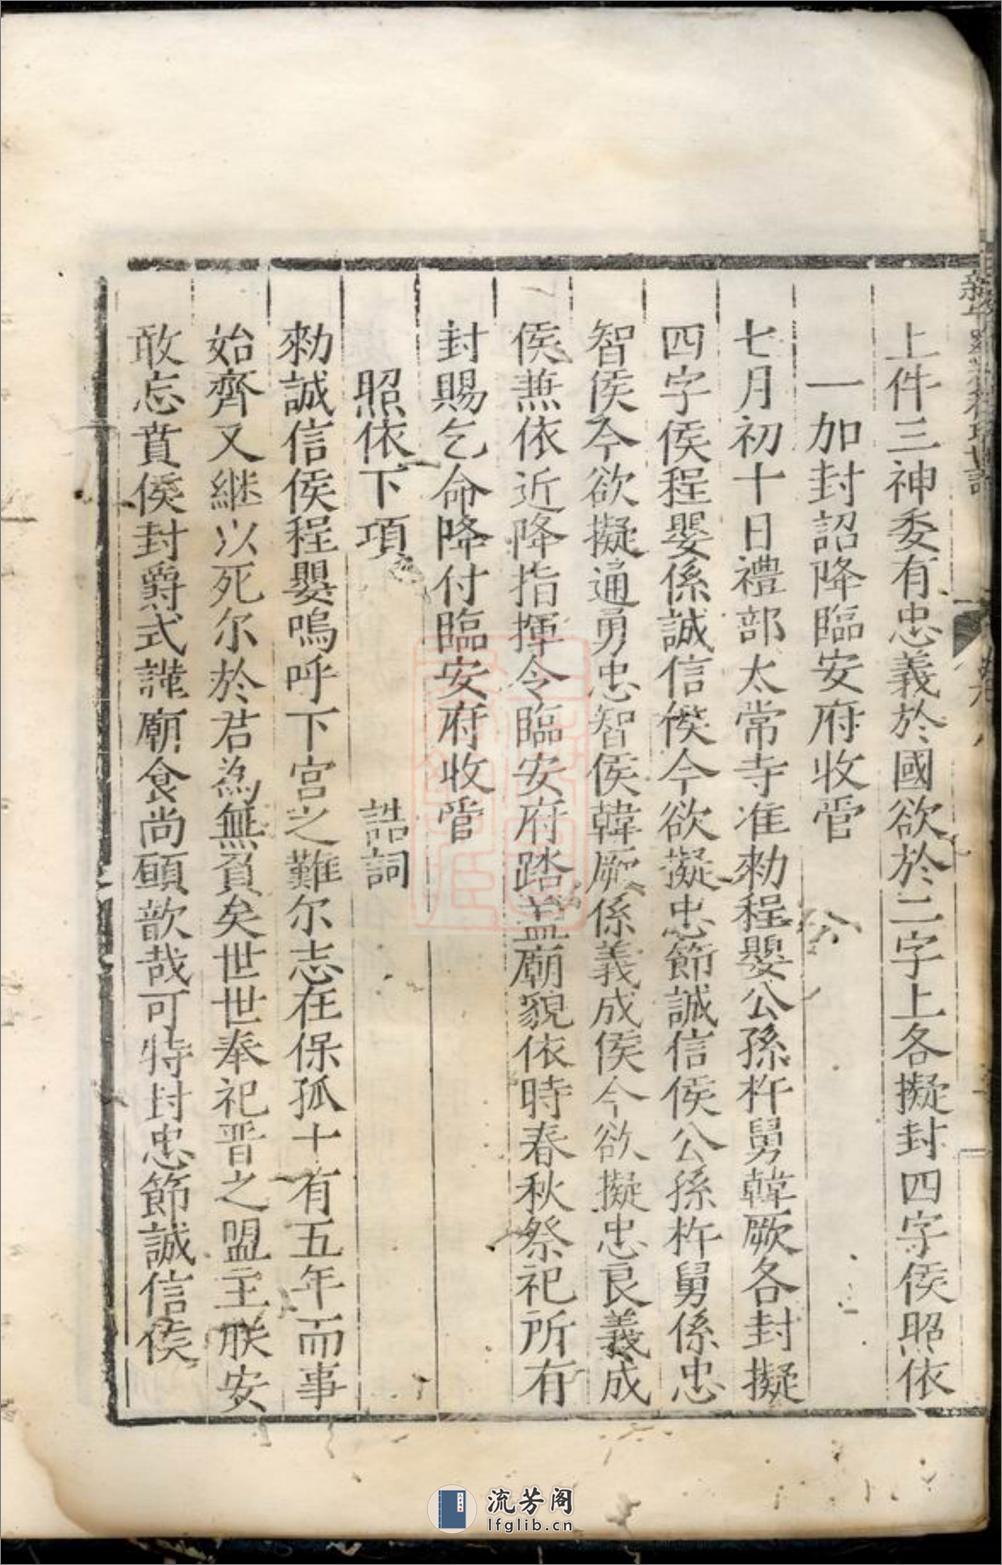 上件三神委有忠義於國欲於二字上各擬封四字侯照依
一加封詔降臨安府收管
七月初十日禮部太常寺准勑程嬰公孫杵舅韓厥各封擬
四字侯程嬰係誠信侯今欲擬忠節誠信侯公孫杵舅係忠
智侯今欲擬通勇忠智侯韓厥係義成侯今欲擬忠良義成
侯無依近降指揮令臨安府踏盖廟貌依時春秋祭祀所有
封賜乞命降付臨安府收管
照依下項 誥詞
勑誠信侯程嬰嗚呼下宮之難尔志在保孤十有五年而事
始齊又継以死尔於君為無負矣世世奉祀晋之盟主朕安
敢忘賁侯封爵式 廟食尚願歆哉可特封忠節誠信侯
流芳阁
lfglib.cn